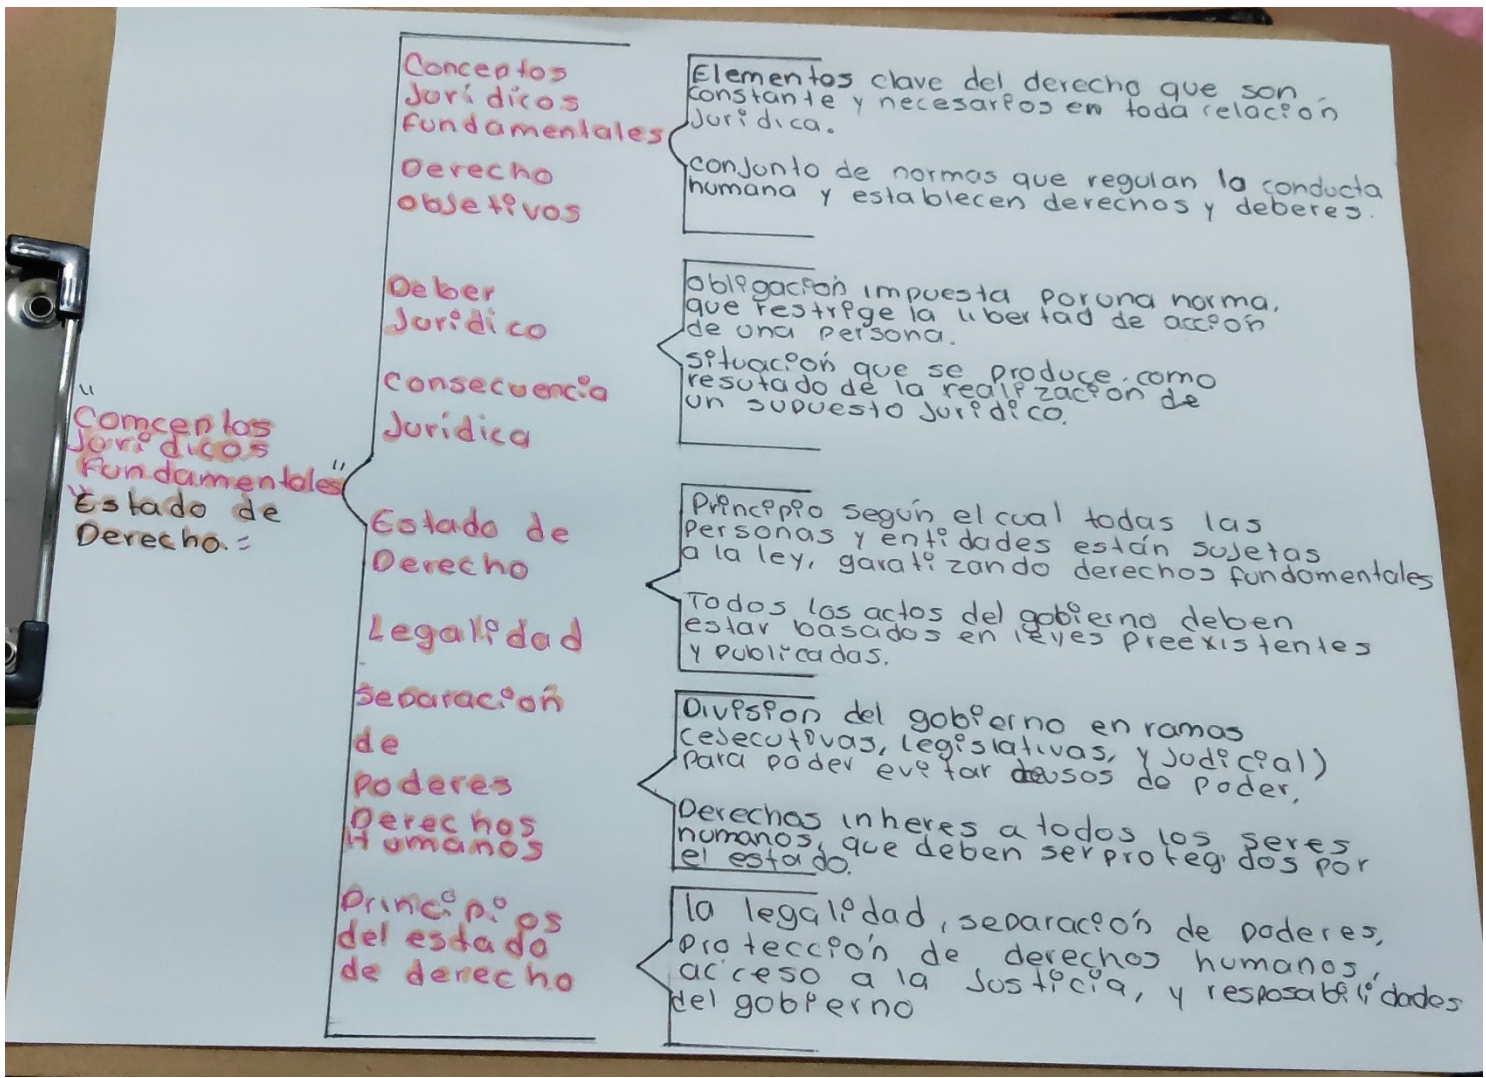 "
Comceptos
Jurídicos
Fundamentales"
"Estado de
Derecho.=
Conceptos
Jurídicos
fundamentales
Derecho
objetivos
Elementos clave del derecho que son
constante y necesarios en toda relación
Jurídica.
conjunto de normas que regulan la conducta
humana y establecen derechos y deberes.
Deber
Jurídico
consecuencia
Jurídica
obligación impuesta por una norma,
que restrige la libertad de acción
de una persona.
situación que se produce como
resutado de la realización de
un supuesto Jurídico.
Estado de
Derecho
Legalidad
Principio según el cual todas las
Personas y entidades están sujetas
a la ley, garatizando derechos fundamentales
Todos los actos del gobierno deben
estar basados en leyes preexistentes
y publicadas.
separación
de
poderes
Derechos
Humanos
División del gobierno en ramas
(ejecutivas, legislativas, y judicial)
para poder evitar de poder.
Derechos inheres a todos los seres
humanos, que deben ser protegidos por
el estado.
Principios
del estado
de derecho
la legalidad, separación de poderes,
protección de derechos humanos,
acceso a la Justicia, y resposabilidades
del gobierno